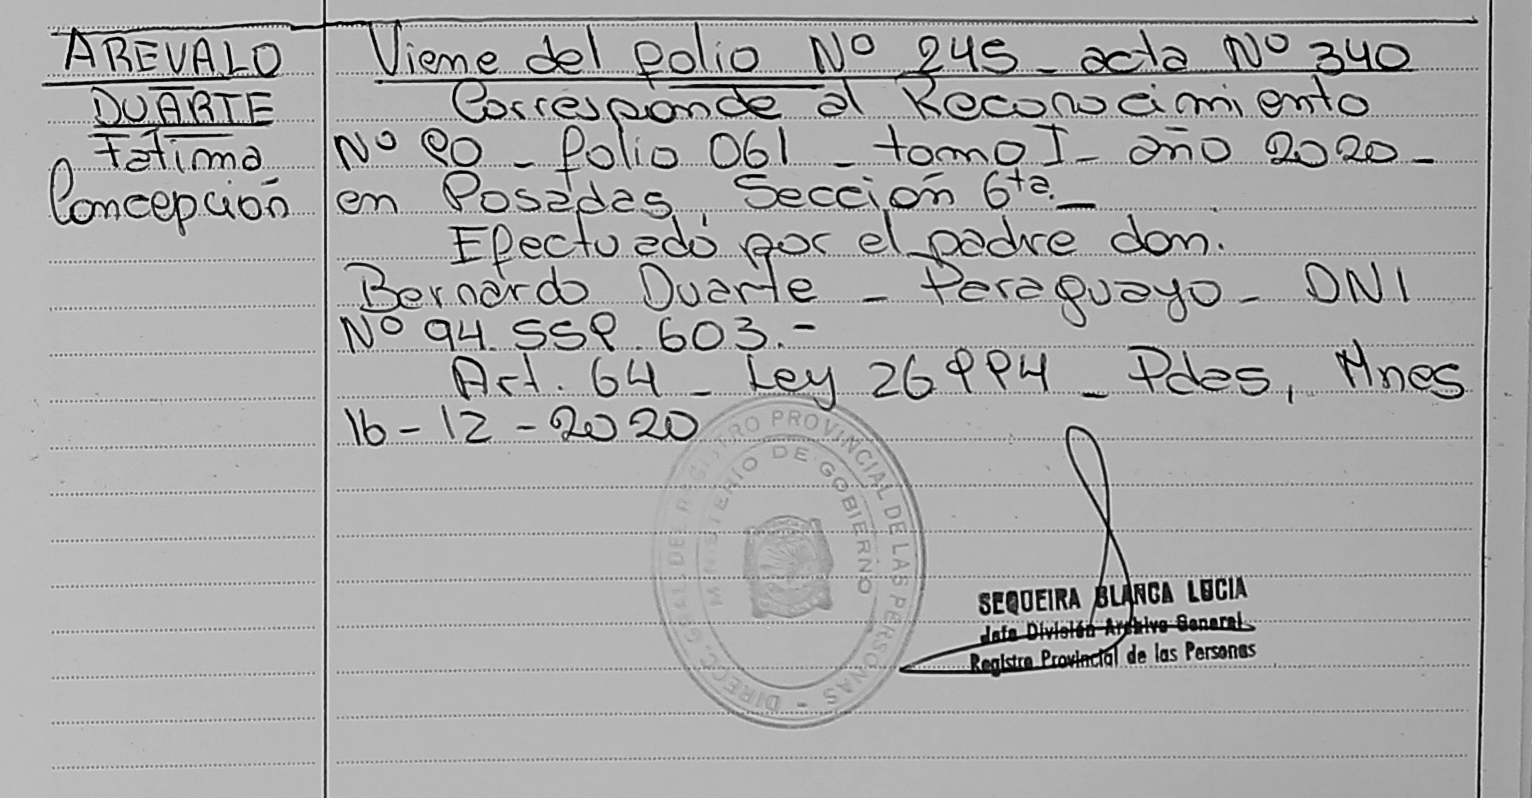 AREVALO
DUARTE
Fátima
Concepción
Viene del folio Nº 245 - acta Nº 340
Corresponde al Reconocimiento
Nº 90 - folio 061 - tomo I - año 2020 -
en Posadas, Sección 6ta. -
Efectuado por el padre don.
Bernardo Duarte - Paraguayo - DNI
Nº 94.559.603.-
Art. 64 - Ley 26.994 - Pdas, Mnes
16-12-2020
DIRECC. GRAL. DEL REGISTRO PROVINCIAL DE LAS PERSONAS -
MINISTERIO DE GOBIERNO
SEQUEIRA BLANCA LUCIA
Jefe División Archivo General
Registro Provincial de las Personas